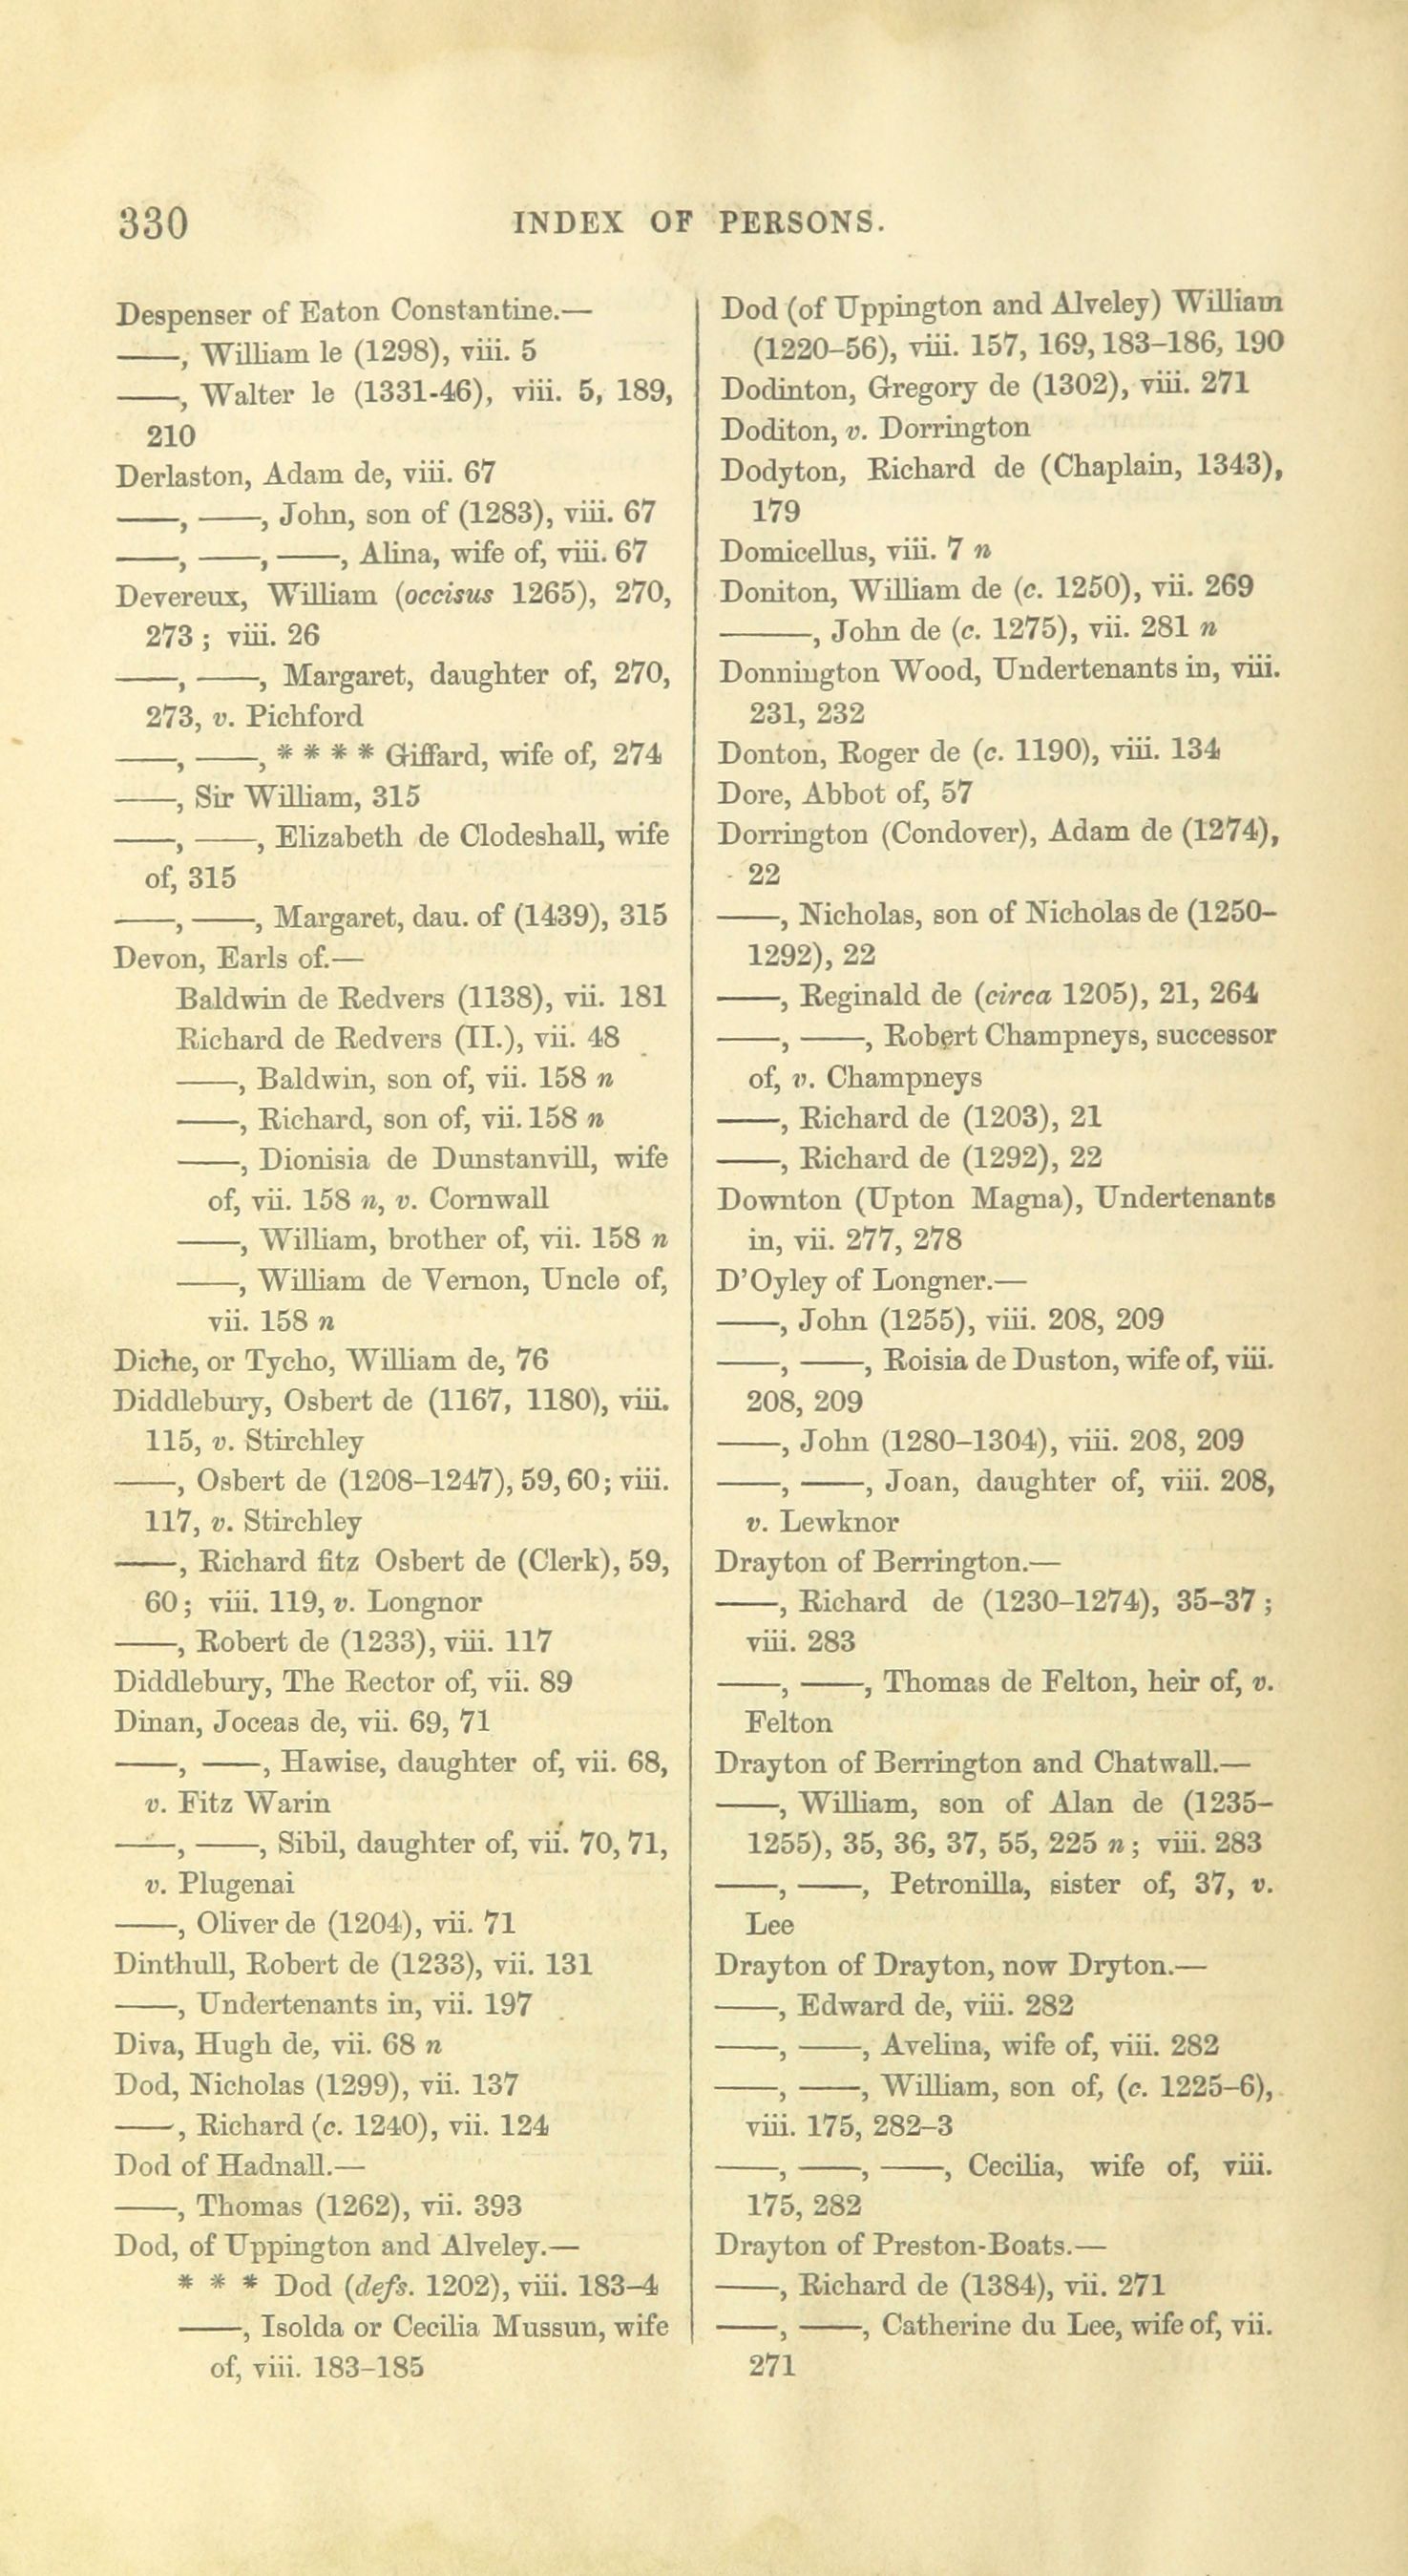 330
INDEX OF PERSONS.
Despenser of Eaton Constantine.—
——, William le (1298), viii. 5
——, Walter le (1331-46), viii. 5, 189,
210
Derlaston, Adam de, viii. 67
——, ——, John, son of (1283), viii. 67
——, ——, ——, Alina, wife of, viii. 67
Devereux, William (occisus 1265), 270,
273; viii. 26
——, ——, Margaret, daughter of, 270,
273, v. Pichford
——, ——, * * * * Giffard, wife of, 274
——, Sir William, 315
——, ——, Elizabeth de Clodeshall, wife
of, 315
——, ——, Margaret, dau. of (1439), 315
Devon, Earls of.—
Baldwin de Redvers (1138), vii. 181
Richard de Redvers (II.), vii. 48
——, Baldwin, son of, vii. 158 n
——, Richard, son of, vii. 158 n
——, Dionisia de Dunstanvill, wife
of, vii. 158 n, v. Cornwall
——, William, brother of, vii. 158 n
——, William de Vernon, Uncle of,
vii. 158 n
Diche, or Tycho, William de, 76
Diddlebury, Osbert de (1167, 1180), viii.
115, v. Stirchley
——, Osbert de (1208–1247), 59, 60; viii.
117, v. Stirchley
——, Richard fitz Osbert de (Clerk), 59,
60; viii. 119, v. Longnor
——, Robert de (1233), viii. 117
Diddlebury, The Rector of, vii. 89
Dinan, Joceas de, vii. 69, 71
——, ——, Hawise, daughter of, vii. 68,
v. Fitz Warin
——, ——, Sibil, daughter of, vii. 70, 71,
v. Plugenai
——, Oliver de (1204), vii. 71
Dinthull, Robert de (1233), vii. 131
——, Undertenants in, vii. 197
Diva, Hugh de, vii. 68 n
Dod, Nicholas (1299), vii. 137
——, Richard (c. 1240), vii. 124
Dod of Hadnall.—
——, Thomas (1262), vii. 393
Dod, of Uppington and Alveley.—
* * * Dod (defs. 1202), viii. 183–4
——, Isolda or Cecilia Mussun, wife
of, viii. 183–185
Dod (of Uppington and Alveley) William
(1220–56), viii. 157, 169, 183–186, 190
Dodinton, Gregory de (1302), viii. 271
Doditon, v. Dorrington
Dodyton, Richard de (Chaplain, 1343),
179
Domicellus, viii. 7 n
Doniton, William de (c. 1250), vii. 269
——, John de (c. 1275), vii. 281 n
Donnington Wood, Undertenants in, viii.
231, 232
Donton, Roger de (c. 1190), viii. 134
Dore, Abbot of, 57
Dorrington (Condover), Adam de (1274),
22
——, Nicholas, son of Nicholas de (1250–
1292), 22
——, Reginald de (circa 1205), 21, 264
——, ——, Robert Champneys, successor
of, v. Champneys
——, Richard de (1203), 21
——, Richard de (1292), 22
Downton (Upton Magna), Undertenants
in, vii. 277, 278
D'Oyley of Longner.—
——, John (1255), viii. 208, 209
——, ——, Roisia de Duston, wife of, viii.
208, 209
——, John (1280–1304), viii. 208, 209
——, ——, Joan, daughter of, viii. 208,
v. Lewknor
Drayton of Berrington.—
——, Richard de (1230–1274), 35–37;
viii. 283
——, ——, Thomas de Felton, heir of, v.
Felton
Drayton of Berrington and Chatwall.—
——, William, son of Alan de (1235–
1255), 35, 36, 37, 55, 225 n; viii. 283
——, ——, Petronilla, sister of, 37, v.
Lee
Drayton of Drayton, now Dryton.—
——, Edward de, viii. 282
——, ——, Avelina, wife of, viii. 282
——, ——, William, son of, (c. 1225–6),
viii. 175, 282–3
——, ——, ——, Cecilia, wife of, viii.
175, 282
Drayton of Preston-Boats.—
——, Richard de (1384), vii. 271
——, ——, Catherine du Lee, wife of, vii.
271